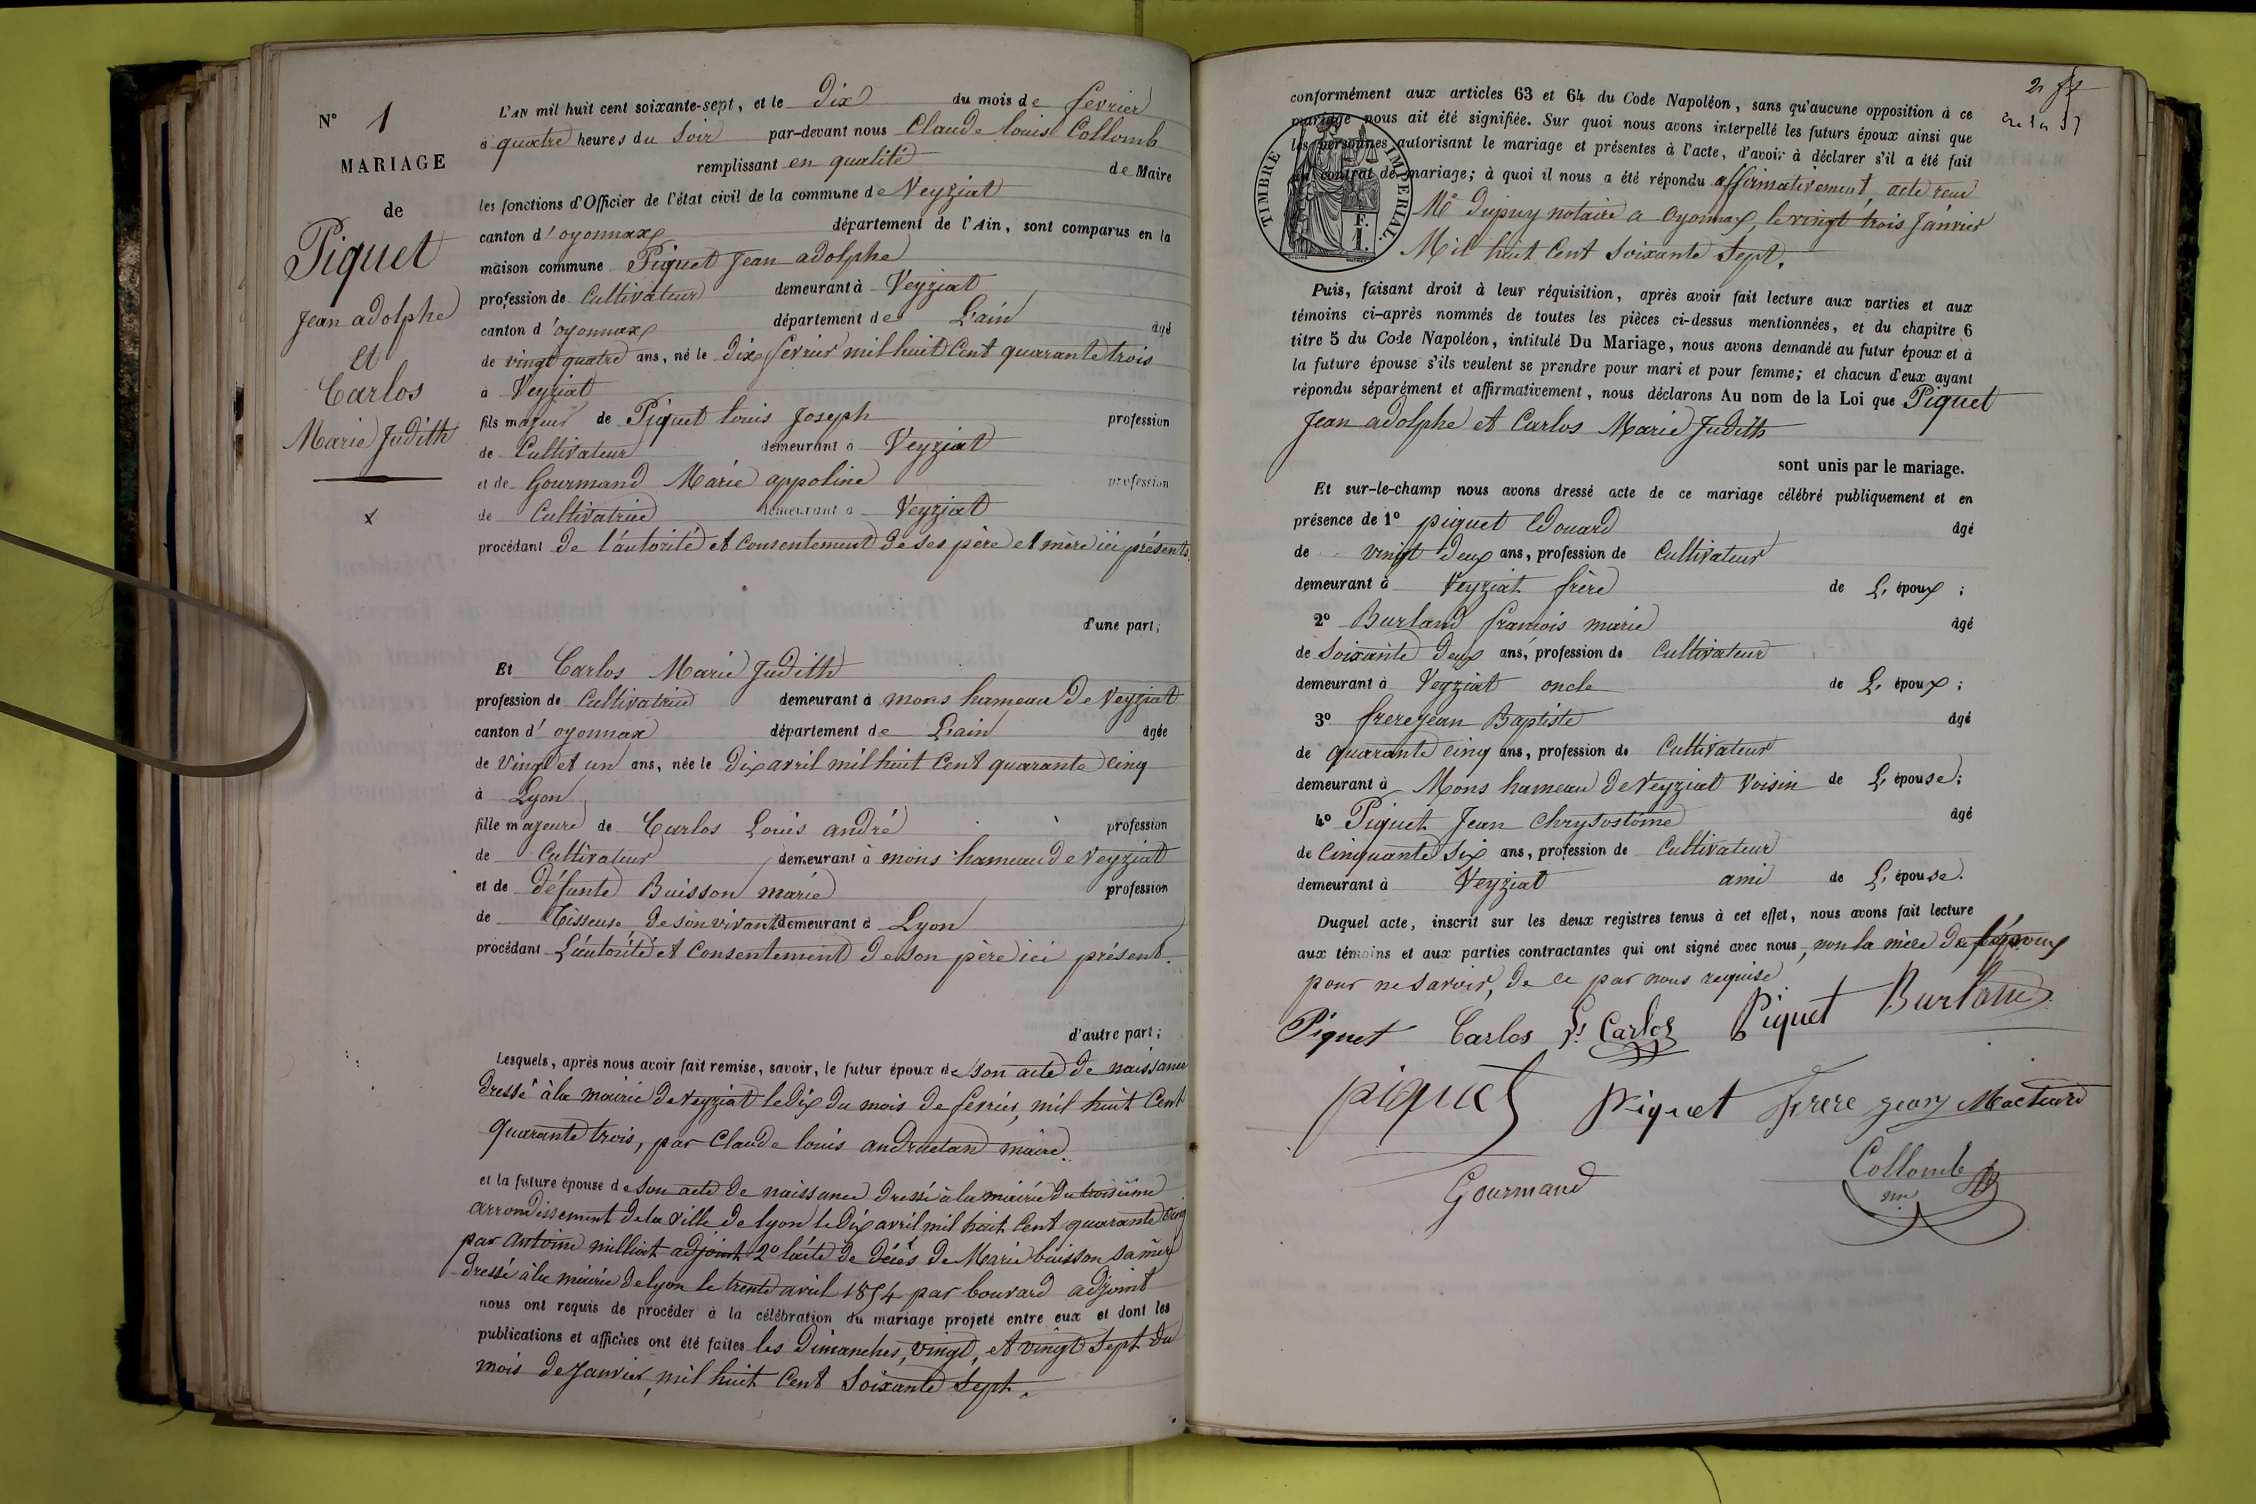 N° 1
MARIAGE
de
Piquet
Jean adolphe
et
Carlos
Marie Judith
L'AN mil huit cent soixante-sept, et le dix du mois de fevrier
à quatre heures du soir par-devant nous Claude louis Collomb
remplissant en qualité de Maire
les fonctions d'Officier de l'état civil de la commune de Veyziat
canton d'oyonnax département de l'Ain, sont comparus en la
maison commune Piquet Jean adolphe
profession de Cultivateur demeurant à Veyziat
canton d'oyonnax département de L'ain âgé
de vingt quatre ans, né le dix fevrier mil huit Cent quarante trois
à Veyziat
fils majeur de Piquet louis Joseph profession
de Cultivateur demeurant à Veyziat
et de Gourmand Marie appoline profession
de Cultivatrice demeurant à Veyziat
procédant de l'autorité et consentement de ses père et mère ici présents
d'une part;
Et Carlos Marie Judith
profession de Cultivatrice demeurant à mons hameau de Veyziat
canton d'oyonnax département de L'ain âgée
de Vingt et un ans, née le dix avril mil huit Cent quarante cinq
à Lyon
fille majeure de Carlos Louis andré profession
de Cultivateur demeurant à mons hameau de Veyziat
et de défunte Buisson marie profession
de Tisseuse de son vivant demeurant à Lyon
procédant L'autorité et consentement de son père ici présent.
d'autre part;
Lesquels, après nous avoir fait remise, savoir, le futur époux de son acte de naissance
dressé à la mairie de Veyziat le dix du mois de fevrier, mil huit Cent
quarante trois, par Claude louis maire.
et la future épouse de son acte de naissance dressé à la mairie du troisième
arrondissement de la ville de lyon le dix avril mil huit Cent quarante cinq
par antoine milliat adjoint 2° l'acte de décès de Marie buisson sa mère
dressé à la mairie de lyon le trente avril 1854 par bouvard adjoint
nous ont requis de procéder à la célébration du mariage projeté entre eux et dont les
publications et affiches ont été faites les dimanches, vingt, et vingt sept du
mois de Janvier, mil huit Cent Soixante Sept.
conformément aux articles 63 et 64 du Code Napoléon, sans qu'aucune opposition à ce
mariage nous ait été signifiée. Sur quoi nous avons interpellé les futurs époux ainsi que
les personnes autorisant le mariage et présentes à l'acte, d'avoir à déclarer s'il a été fait
un contrat de mariage; à quoi il nous a été répondu affirmativement, acte recu
TIMBRE IMPERIAL.
Me dupuy notaire a oyonnax, le vingt trois Janvier
Mil huit Cent Soixante Sept.
Puis, faisant droit à leur réquisition, après avoir fait lecture aux parties et aux
témoins ci-après nommés de toutes les pièces ci-dessus mentionnées, et du chapitre 6
titre 5 du Code Napoléon, intitulé Du Mariage, nous avons demandé au futur époux et à
la future épouse s'ils veulent se prendre pour mari et pour femme; et chacun d'eux ayant
répondu séparément et affirmativement, nous déclarons Au nom de la Loi que Piquet
Jean adolphe et Carlos Marie Judith
sont unis par le mariage.
Et sur-le-champ nous avons dressé acte de ce mariage célébré publiquement et en
présence de 1° piquet Edouard âgé
de vingt deux ans, profession de Cultivateur
demeurant à Veyziat frère de L'époux;
2° Burland francois marie âgé
de Soixante deux ans, profession de Cultivateur
demeurant à Veyziat oncle de L'époux;
3° frerejean Baptiste âgé
de quarante cinq ans, profession de Cultivateur
demeurant à Mons hameau de Veyziat Voisin de L'épouse;
4° Piquet Jean Chrysostôme âgé
de Cinquante Six ans, profession de Cultivateur
demeurant à Veyziat ami de L'épouse.
Duquel acte, inscrit sur les deux registres tenus à cet effet, nous avons fait lecture
aux témoins et aux parties contractantes qui ont signé avec nous, non la mère de l'époux
pour ne savoir, de ce par nous requise
Piquet Carlos Ls Carlos Piquet Burland
piquet Piquet Frere jean
Gourmand Collomb